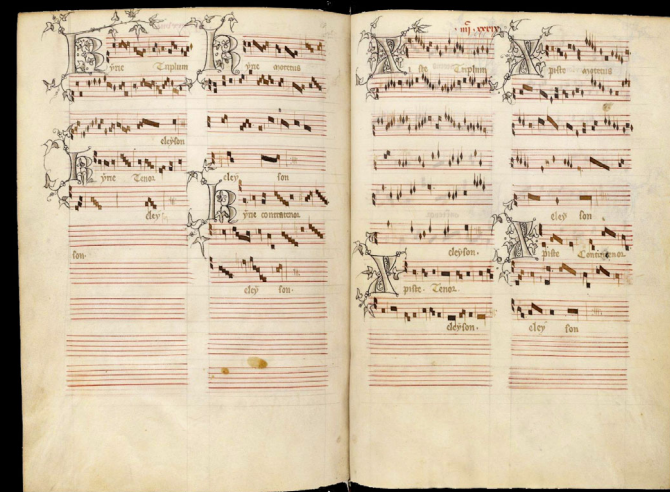 Kyrie Triplum
eleyson
Kyrie Tenor
eley
son.
Kyrie motetus
eley son
Kyrie contratenor
eley son.
Xpiste Triplum
eleyson.
Xpiste Tenor
eleyson.
Xpiste motetus
eley son
Xpiste Contratenor
eley son